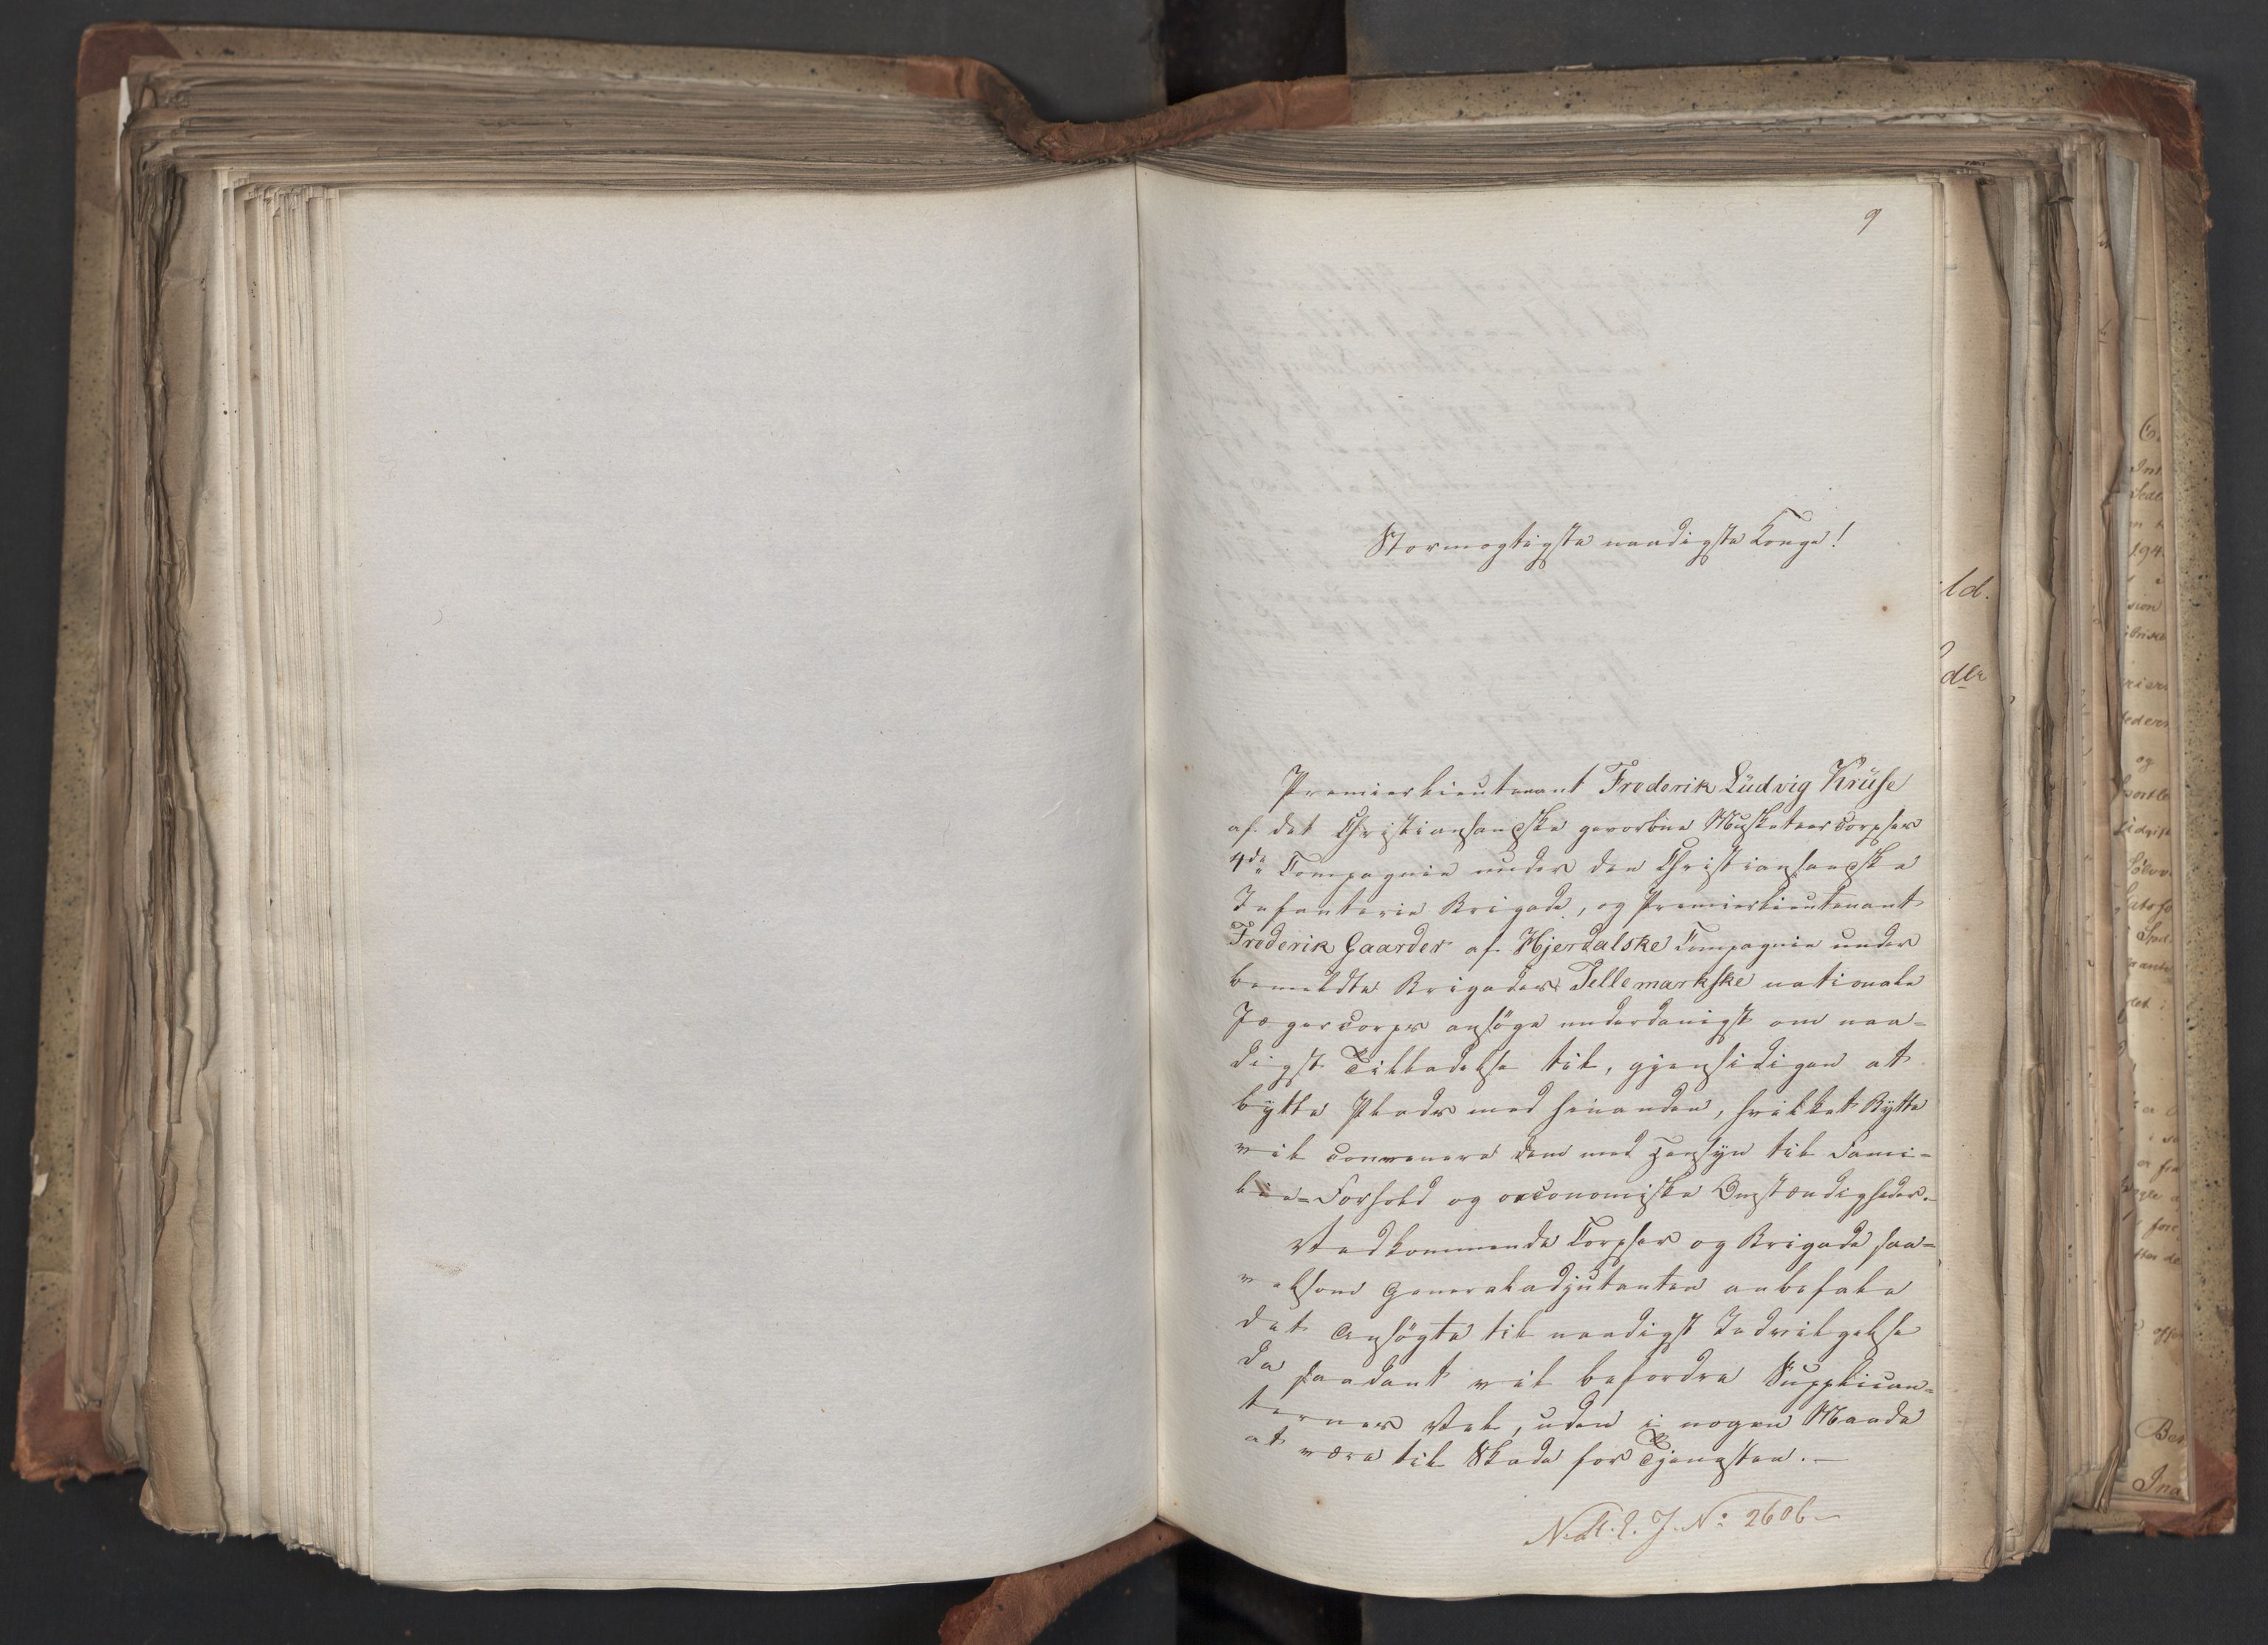 9
Stormægtigste naadigste Konge!
Premierlieutenant Frederik Ludvig Kruse
af det Christiansandske gevorbne Musketeer Corpses
4de Compagnie under den Christiansandske
Infanterie Brigade, og Premierlieutenant
Frederik Gaarder af Hjerdalske Compagnie under
bemeldte Brigades Tellemarkske nationale
Jægercorps ansøge underdanigst om naa=
digst Tilladelse til, gjensidigen at
bytte Plads med hinanden, hvilket Bytte
vil convenere dem med Hensyn til Fami=
lie=Forhold og oeconomiske Omstændigheder.
Vedkommende Corpser og Brigade saa=
velsom Generaladjutanten anbefale
det Ansøgte til naadigst Indvilgelse
da saadant vil befordre Supplican=
ternes Vel, uden i nogen Maade
at være til Skade for Tjenesten.—
2606
ld.
dle